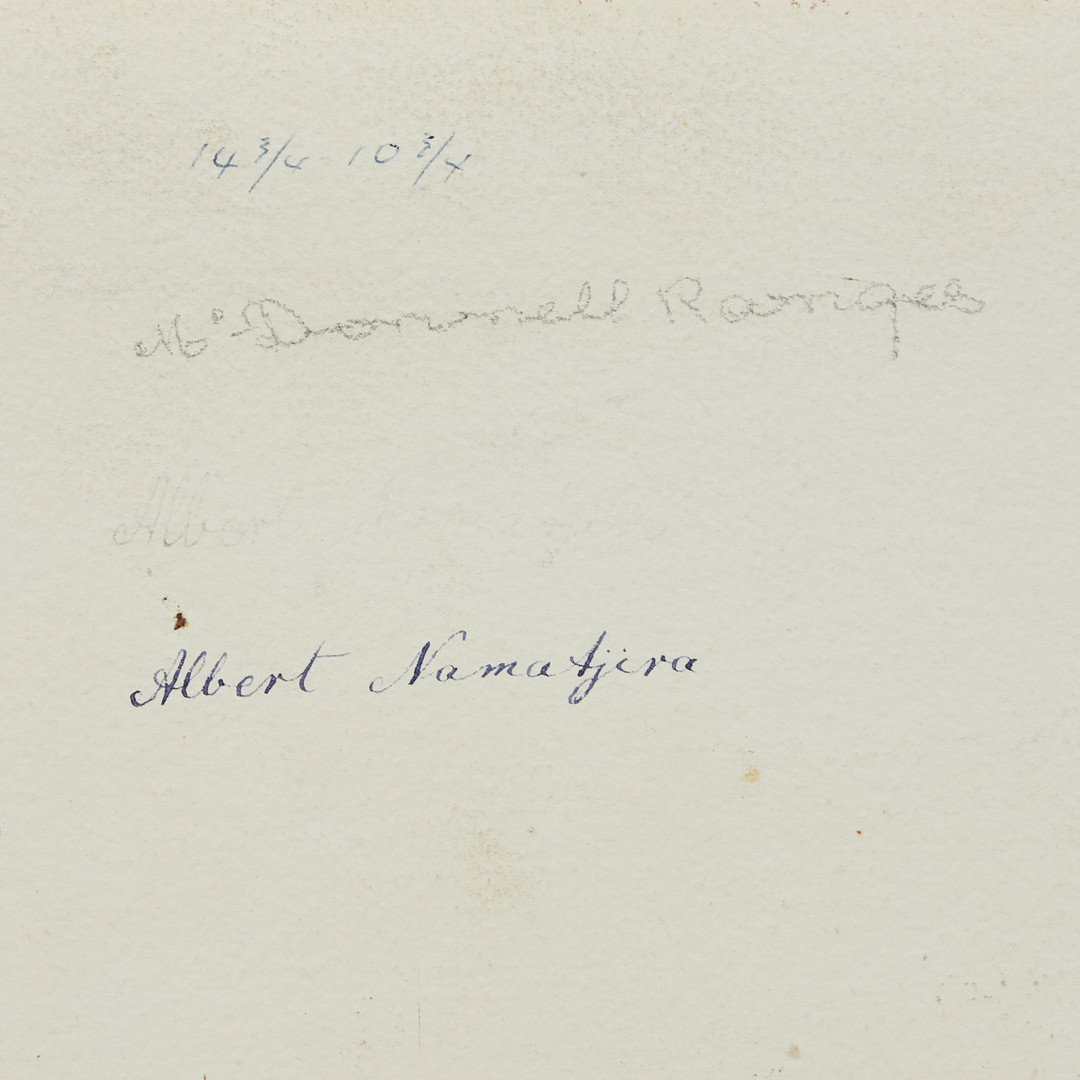 14 3/4 - 10 3/4
Mc-Donnell Ranges
Albert
Albert Namatjira